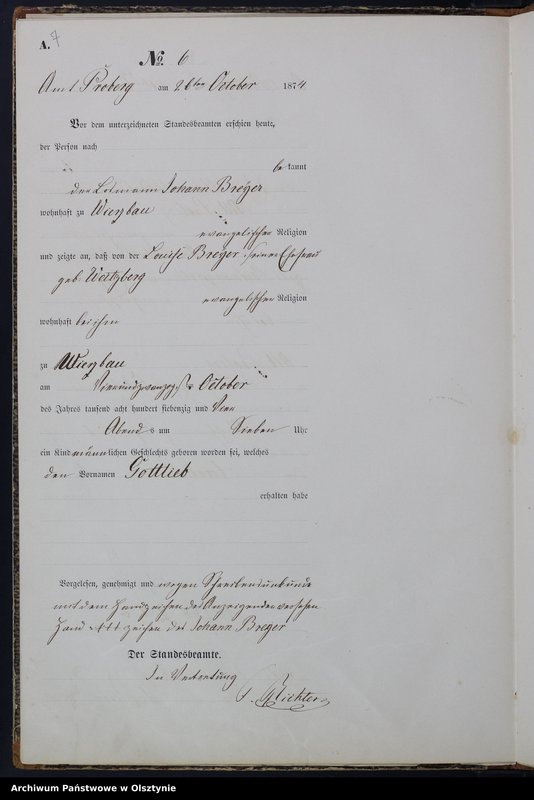 A. 7
No. 6
Amt Proberg am 26ten October 1874
Vor dem unterzeichneten Standesbeamten erschien heute,
der Person nach
bekannt
der Losmann Johann Breger
wohnhaft zu Wiersbau
evangelischer Religion
und zeigte an, daß von der Louise Breger seiner Ehefrau
geb. Weitzberg
evangelischer Religion
wohnhaft bei ihm
zu Wiersbau
am Vierundzwanzigsten October
des Jahres tausend acht hundert siebenzig und Vier
Abends um Sieben Uhr
ein Kind männlichen Geschlechts geboren worden sei, welches
den Vornamen Gottlieb
erhalten habe
Vorgelesen, genehmigt und wegen Schreibensunkunde
mit dem Handzeichen des Anzeigenden versehen
Hand +++ zeichen des Johann Breger
Der Standesbeamte.
In Vertretung
Richter
Archiwum Państwowe w Olsztynie